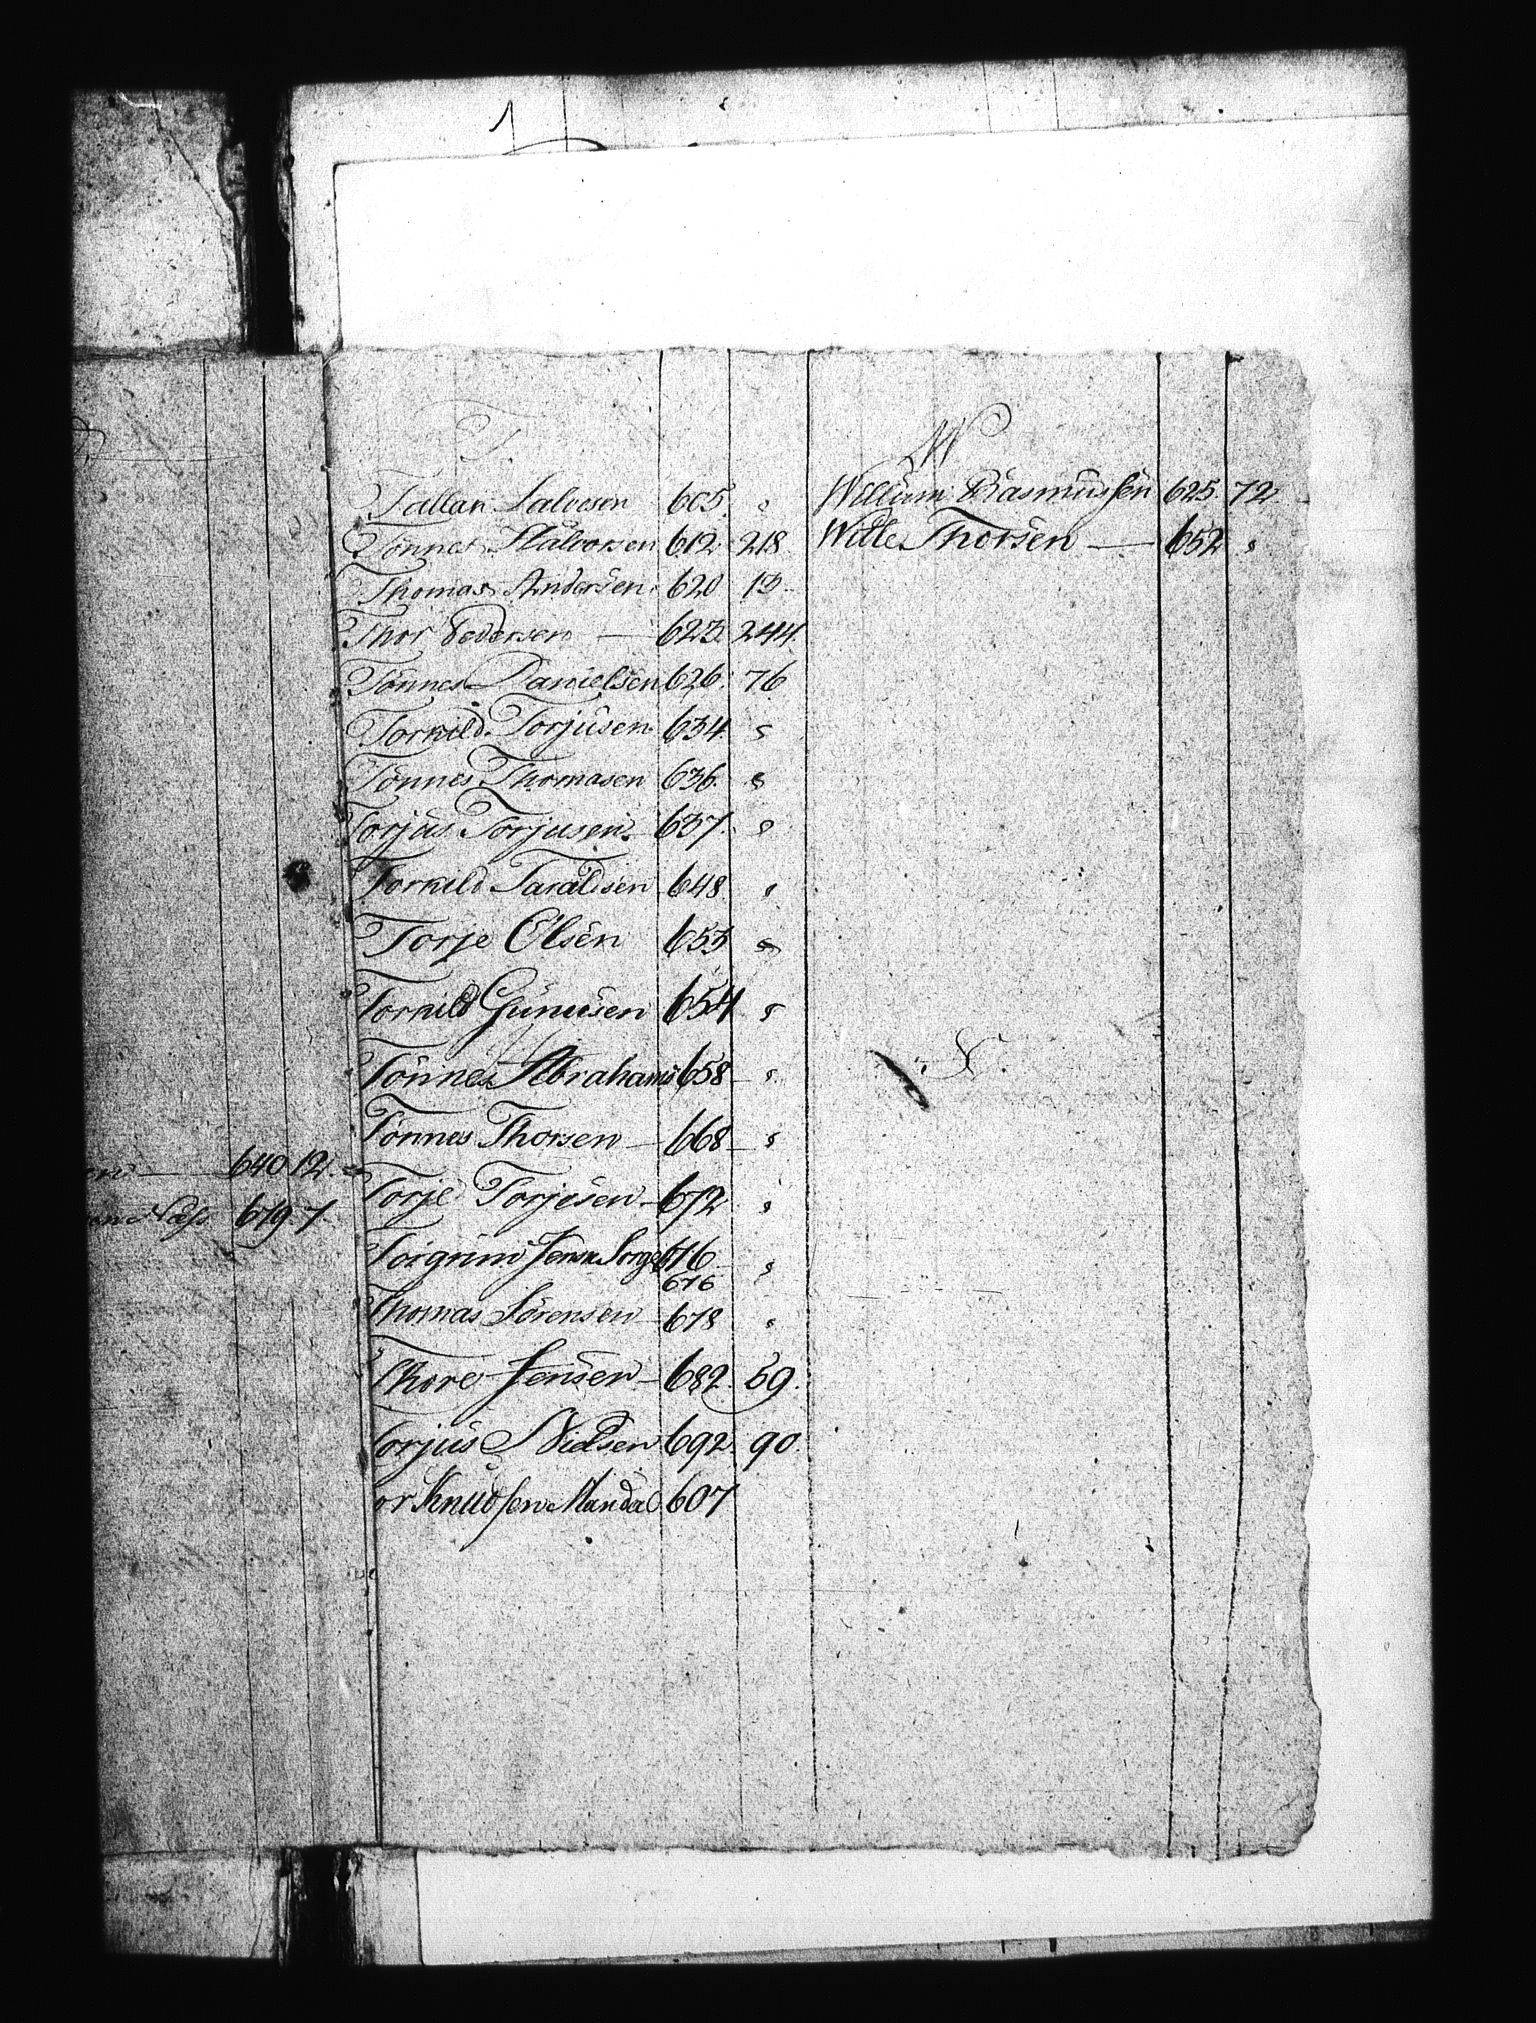 T.
Tallan Salvesen 605 "
Tönnes Halvorsen 612 218
Thomas Andersen 620 13
Thor Pedersen — 623 244
Tönnes Danielsen 626 76
Torkild Torjusen 634 "
Tönnes Thomasen 636 "
Torjus Torjusen 637 "
Torkild Taraldsen 648 "
Torje Olsen 653 "
Torkild Gunusen 654 "
Tönnes Abrahams 658 "
Tönnes Thorsen — 668 "
Torje Torjesen 672 "
Torgrim Jensen 676 "
676
Thomas Sörensen 678 "
Thore Jensen 682 59
Torjus Nielsen 692 90
or Knudsen Mandal 607
W
Willum Rasmussen 625 72
Wille Thorsen — 652 "
en — 640 12
en Næss 679 7